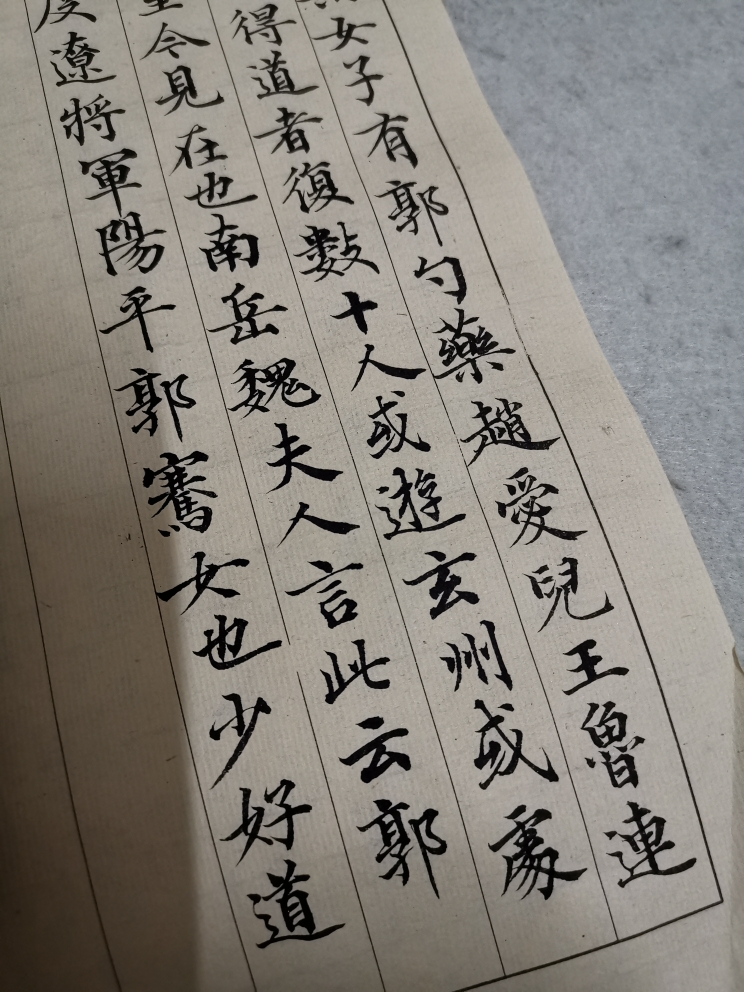 女子有郭勺藥趙愛兒王魯連
得道者復數十人或遊玄州或處
今見在也南岳魏夫人言此云郭
度遼將軍陽平郭騫女也少好道